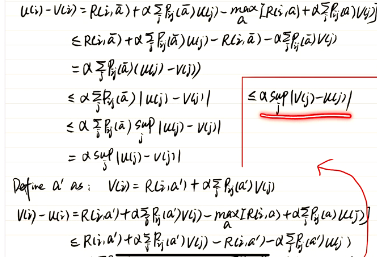 u(i) - V(i) = R(i,ā) + α Σ_j P_ij(ā) u(j) - max_a [R(i,a) + α Σ_j P_ij(a) V(j)]
≤ R(i,ā) + α Σ_j P_ij(ā) u(j) - R(i,ā) - α Σ_j P_ij(ā) V(j)
= α Σ_j P_ij(ā) (u(j) - V(j))
≤ α Σ_j P_ij(ā) |u(j) - V(j)|
≤ α sup_j |V(j) - u(j)|
≤ α Σ_j P_ij(ā) sup_j |u(j) - V(j)|
= α sup_j |u(j) - V(j)|
Define a' as: V(i) = R(i,a') + α Σ_j P_ij(a') V(j)
V(i) - u(i) = R(i,a') + α Σ_j P_ij(a') V(j) - max_a [R(i,a) + α Σ_j P_ij(a) u(j)]
≤ R(i,a') + α Σ_j P_ij(a') V(j) - R(i,a') - α Σ_j P_ij(a') u(j)